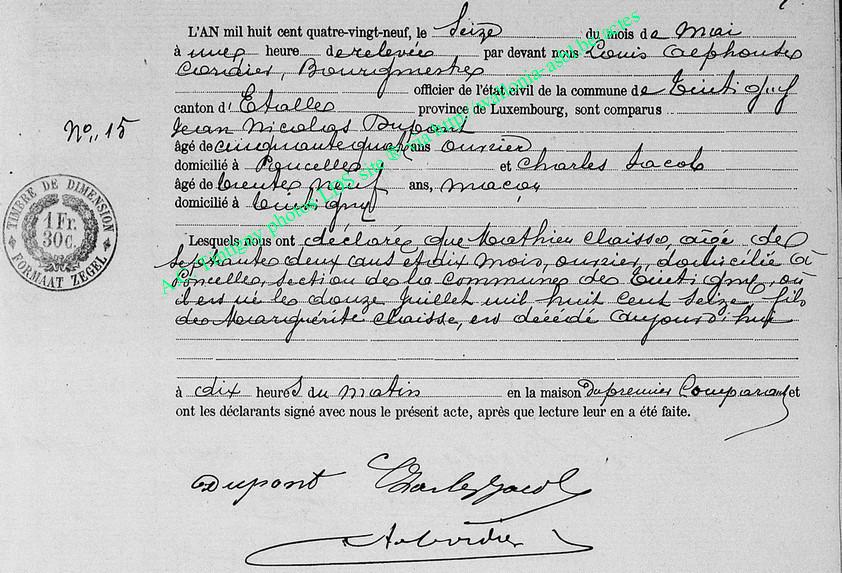 L'AN mil huit cent quatre-vingt-neuf, le Seize du mois de Mai
à une heure de relevée par devant nous Louis Alphonse
Cordier, Bourgmestre
officier de l'état civil de la commune de Tintigny
canton d'Etalle province de Luxembourg, sont comparus
No. 15
Jean Nicolas Dupont
âgé de cinquante quatre ans ouvrier
domicilié à Poncelle et Charles Jacob
âgé de trente neuf ans, maçon
domicilié à Tintigny
TIMBRE DE DIMENSION
1 Fr.
30 c.
FORMAAT ZEGEL
Lesquels nous ont déclaré que Mathieu Claisse, âgé de
septante deux ans et dix mois, ouvrier, domicilié à
Poncelle, section de la commune de Tintigny, où
il est né le douze Juillet mil huit cent seize, fils
de Marguérite Claisse, est décédé aujourd'hui
à dix heures du matin en la maison du premier Comparant et
ont les déclarants signé avec nous le présent acte, après que lecture leur en a été faite.
Dupont Charles Jacob
A. Cordier